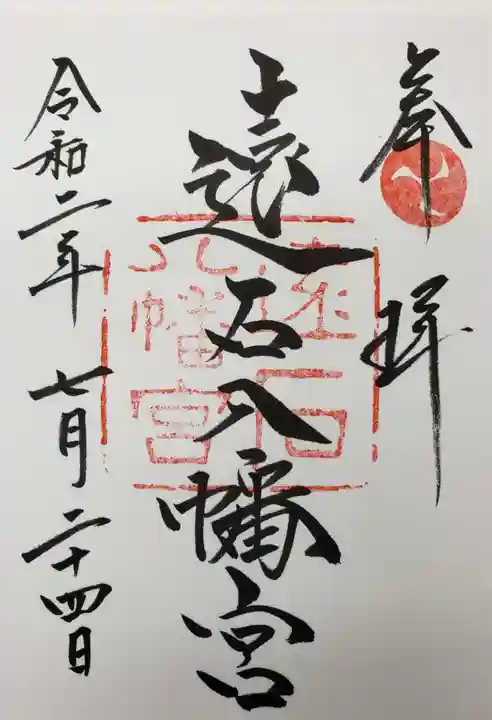 奉拝
遠石八幡宮
遠石八幡宮
令和二年七月二十四日